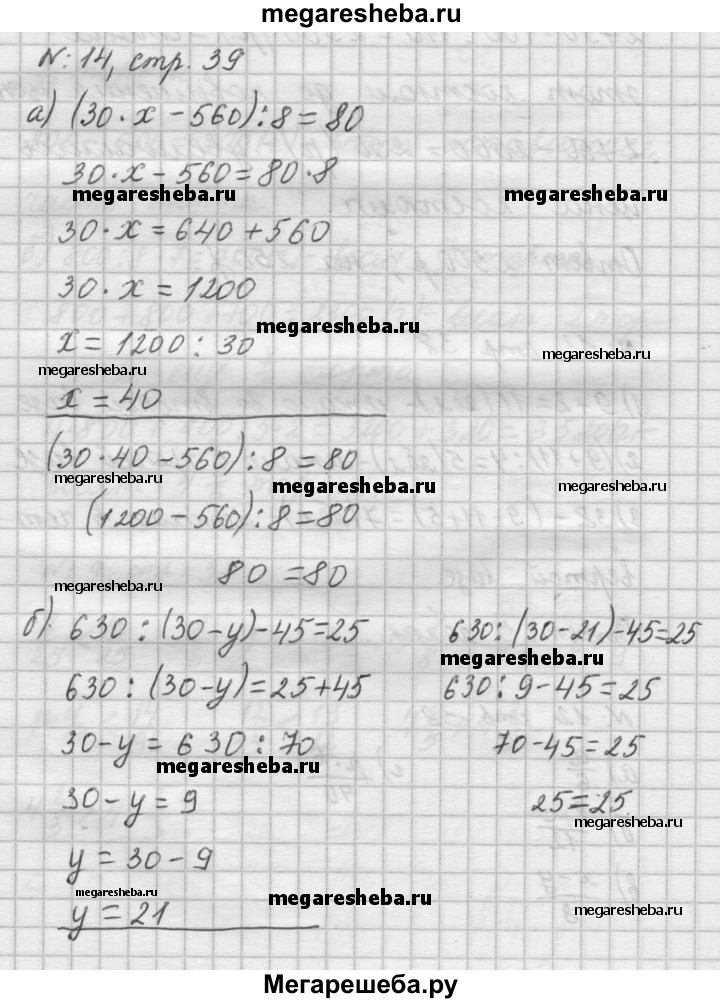 megaresheba.ru
№: 14, стр. 39
а) (30·x − 560):8 = 80
30·x − 560 = 80·8
megaresheba.ru megaresheba.ru
30·x = 640 + 560
30·x = 1200
megaresheba.ru
x = 1200 : 30
megaresheba.ru
megaresheba.ru
x = 40
(30·40 − 560):8 = 80
megaresheba.ru megaresheba.ru megaresheba.ru
(1200 − 560):8 = 80
80 = 80
megaresheba.ru
б) 630 : (30−y)−45=25
630 : (30−y) = 25+45
30−y = 630 : 70
megaresheba.ru
30−y = 9
y = 30 − 9
megaresheba.ru
y = 21
630:(30−21)−45=25
megaresheba.ru
630:9−45=25
70−45=25
25=25
megaresheba.ru
megaresheba.ru
megaresheba.ru
Мегарешеба.ру